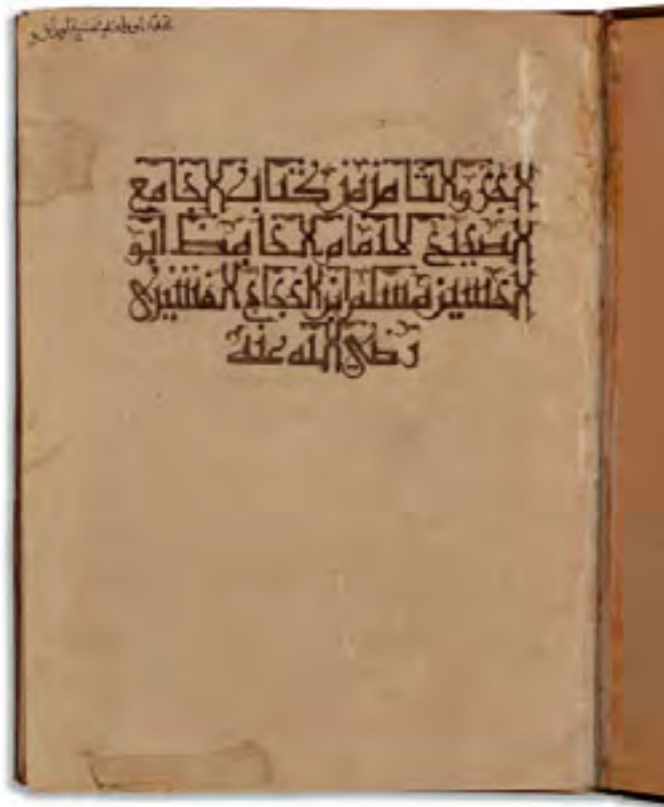 الجزو الثامن من كتاب الجامع
الصحيح للامام الحافظ ابو
الحسين مسلم ابن الحجاج القشيري
رضى الله عنه